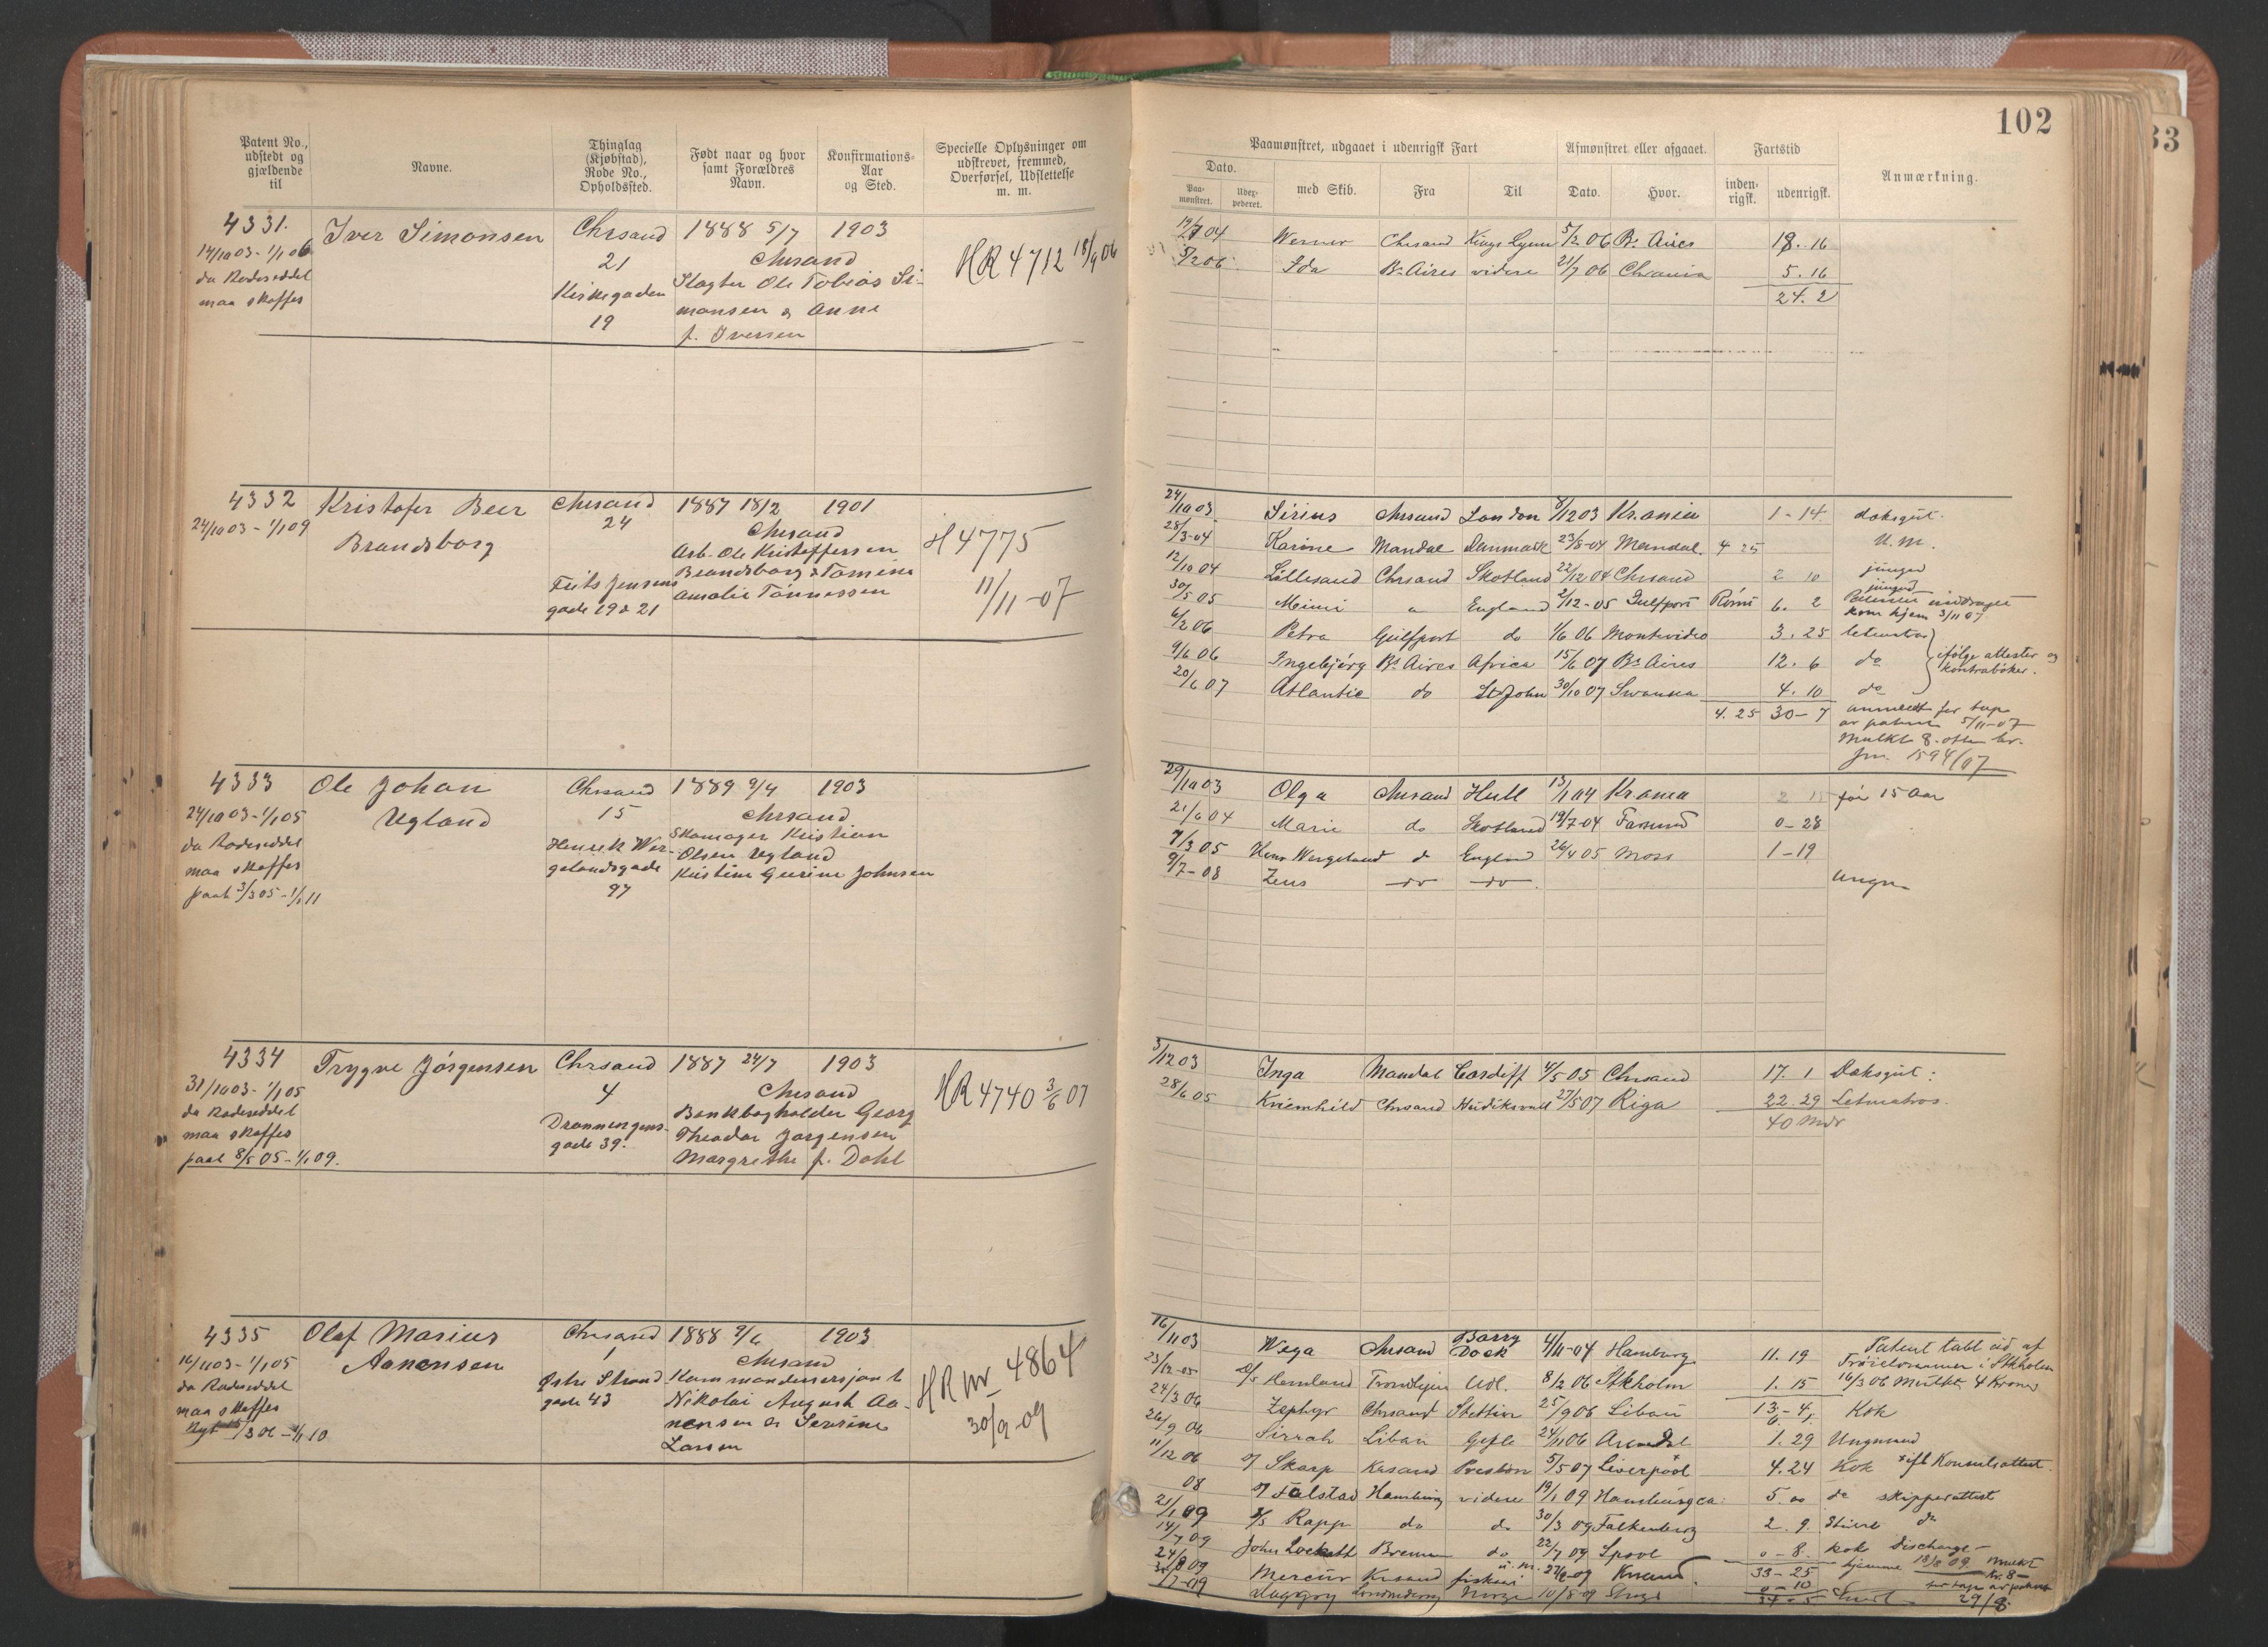 102
Patent No., udstedt og gjældende til
Navne.
Thinglag (Kjøbstad), Rode No., Opholdssted.
Født naar og hvor samt Forældres Navn.
Konfirmations-Aar og Sted.
Specielle Oplysninger om udskrevet, fremmed, Overførsel, Udslettelse m. m.
Paamønstret, udgaaet i udenrigsk Fart
Afmønstret eller afgaaet.
Fartstid
Anmærkning.
Dato.
Paa-mønstret.
med Skib.
Fra
Til
Dato.
Hvor.
inden-rigsk.
udenrigsk.
4331.
Iver Simonsen
Chrsand 1888 5/7 1903
14/10 03 - 1/1 06
21
Chrsand
HR 4712 18/9 06
da Rodeseddel
Kirkegaden
Slagter Ole Tobias Si-
maa skaffes
19
monsen og Anne
f. Iversen
19/7 04 Werner Chrsand Kings Lynn 5/2 06 Bs Aires 18. 16
5/2 06 Ida Bs Aires videre 21/7 06 Chrania 5. 16
24. 2
4332 Kristofer Beer Chrsand 1887 18/2 1901
24/10 03 - 1/1 09
24
Chrsand
Brandsborg
Arb. Ole Kristoffersen
H 4775
Brandsborg & Tomine
Frits Jensens
gade 19 & 21
Amalie Tønnessen
11/11-07
24/10 03 Sirius Chrsand London 8/12 03 Kr.ania 1-14 doksgut.
28/3-04 Karine Mandal Danmark 23/8-04 Mandal. 4 25 U.m.
12/10 04 Lillesand Chrsand Skotland 22/12 04 Chrsand 2 10 jungm
30/5 05 Mimi " England 2/12-05 Gulfport Rømt 6. 2 jungmd
inddraget
kom hjem 3/11 07
6/2 06 Petra Gulfport do 1/6 06 Montevideo 3. 25 letmatros
9/6 06 Ingebjørg Bs Aires Africa 15/6 07 Bs Aires 12. 6 do
ifølge attester og kontrabøker.
20/6 07 Atlantic do St John 30/10 07 Swansea 4. 10 do
4. 25 30-7 anmeldt for tap
av patent 5/11-07
Mulkt 8 otte kr.
Jnr. 1594/07
4333 Ole Johan Chrsand 1889 9/4 1903
24/10 03 - 1/1 05
Ugland
15
Chrsand
da Rodeseddel
Henrik Wer-
gelandsgade
97
Skomager Kristian
maa skaffes
Olsen Ugland
paat 3/3 05 - 1/1 11
Kristine Gurine Johnsen
29/10 03 Olga Chrsand Hull 13/1 04 Krania 2 15 før 15 Aar
21/6 04 Marie do Skotland 19/7-04 Farsund 0-28
7/3 05 Henr Wergeland do England 26/4 05 Moss 1-19
9/7-08 Zeus do do Ungm
4334 Trygve Jørgensen Chrsand 1887 24/7 1903
31/10 03 - 1/1 05
4
Chrsand
HR 4740 3/6 07
da Rodeseddel
Dronningens-
gade 39.
Bankbogholder Georg
maa skaffes
Theodor Jørgensen
paat 8/5 05 - 1/1 09.
Margrethe f. Dahl
3/12 03 Inga Mandal Cardiff 4/5 05 Chrsand 17. 1 Doksgut:
28/6 05 Kriemhild Chrsand Hudiksvall 27/5 07 Riga 22. 29 Letmatros.
40 Mdr
4335 Olaf Marius Chrsand 1888 9/6 1903
16/11 03 - 1/1 05
Aanensen
1
Chrsand
HR nr 4864
da Rodeseddel
Østre Strand-
gade 43
Kommandersersjant
maa skaffes
Nikolai August Aa-
30/9-09
Nyt /3 06 - 1/1 10
nensen og Severine
Larsen
16/11 03 Wega Chrsand Barry Dock 4/11-04 Hamburg 11. 19 Patent tabt
23/12-05 D/S Hemland Trondhjem Udl. 8/2 06 Stkholm 1. 15
i Stkholm
16/3 06 Mulkt 4 Kroner
24/3 06 Zephyr Chrsand Stettin 25/9 06 Libau 13-4 Kok
26/9 06 Sirrah Libau Gefle 24/11 06 Arendal 1. 29 Ungmand
11/12 06 Skarp Krsand Preston 5/5 07 Liverpool 4. 24 Kok ifl Konsulsattest.
08 Falstad Hamburg videre 19/1 09 Hamburg ca: 5. 00 do skipperattest
21/1 09 D/S Rapp do do 30/3 09 Falkenberg 2. 9. Stuert do
14/7 09 John Lockett Bremen do 22/7 09 Spool 0-8. Kok Discharge-
24/8 09 Mercur Krsand fiskeri u. m. Krsand. 33-25 hjemme 18/8 09 Mulkt Kr. 8-
for tap av patent
29/8
Daggry Londonderry Norge 10/8-09 0-10
34-5